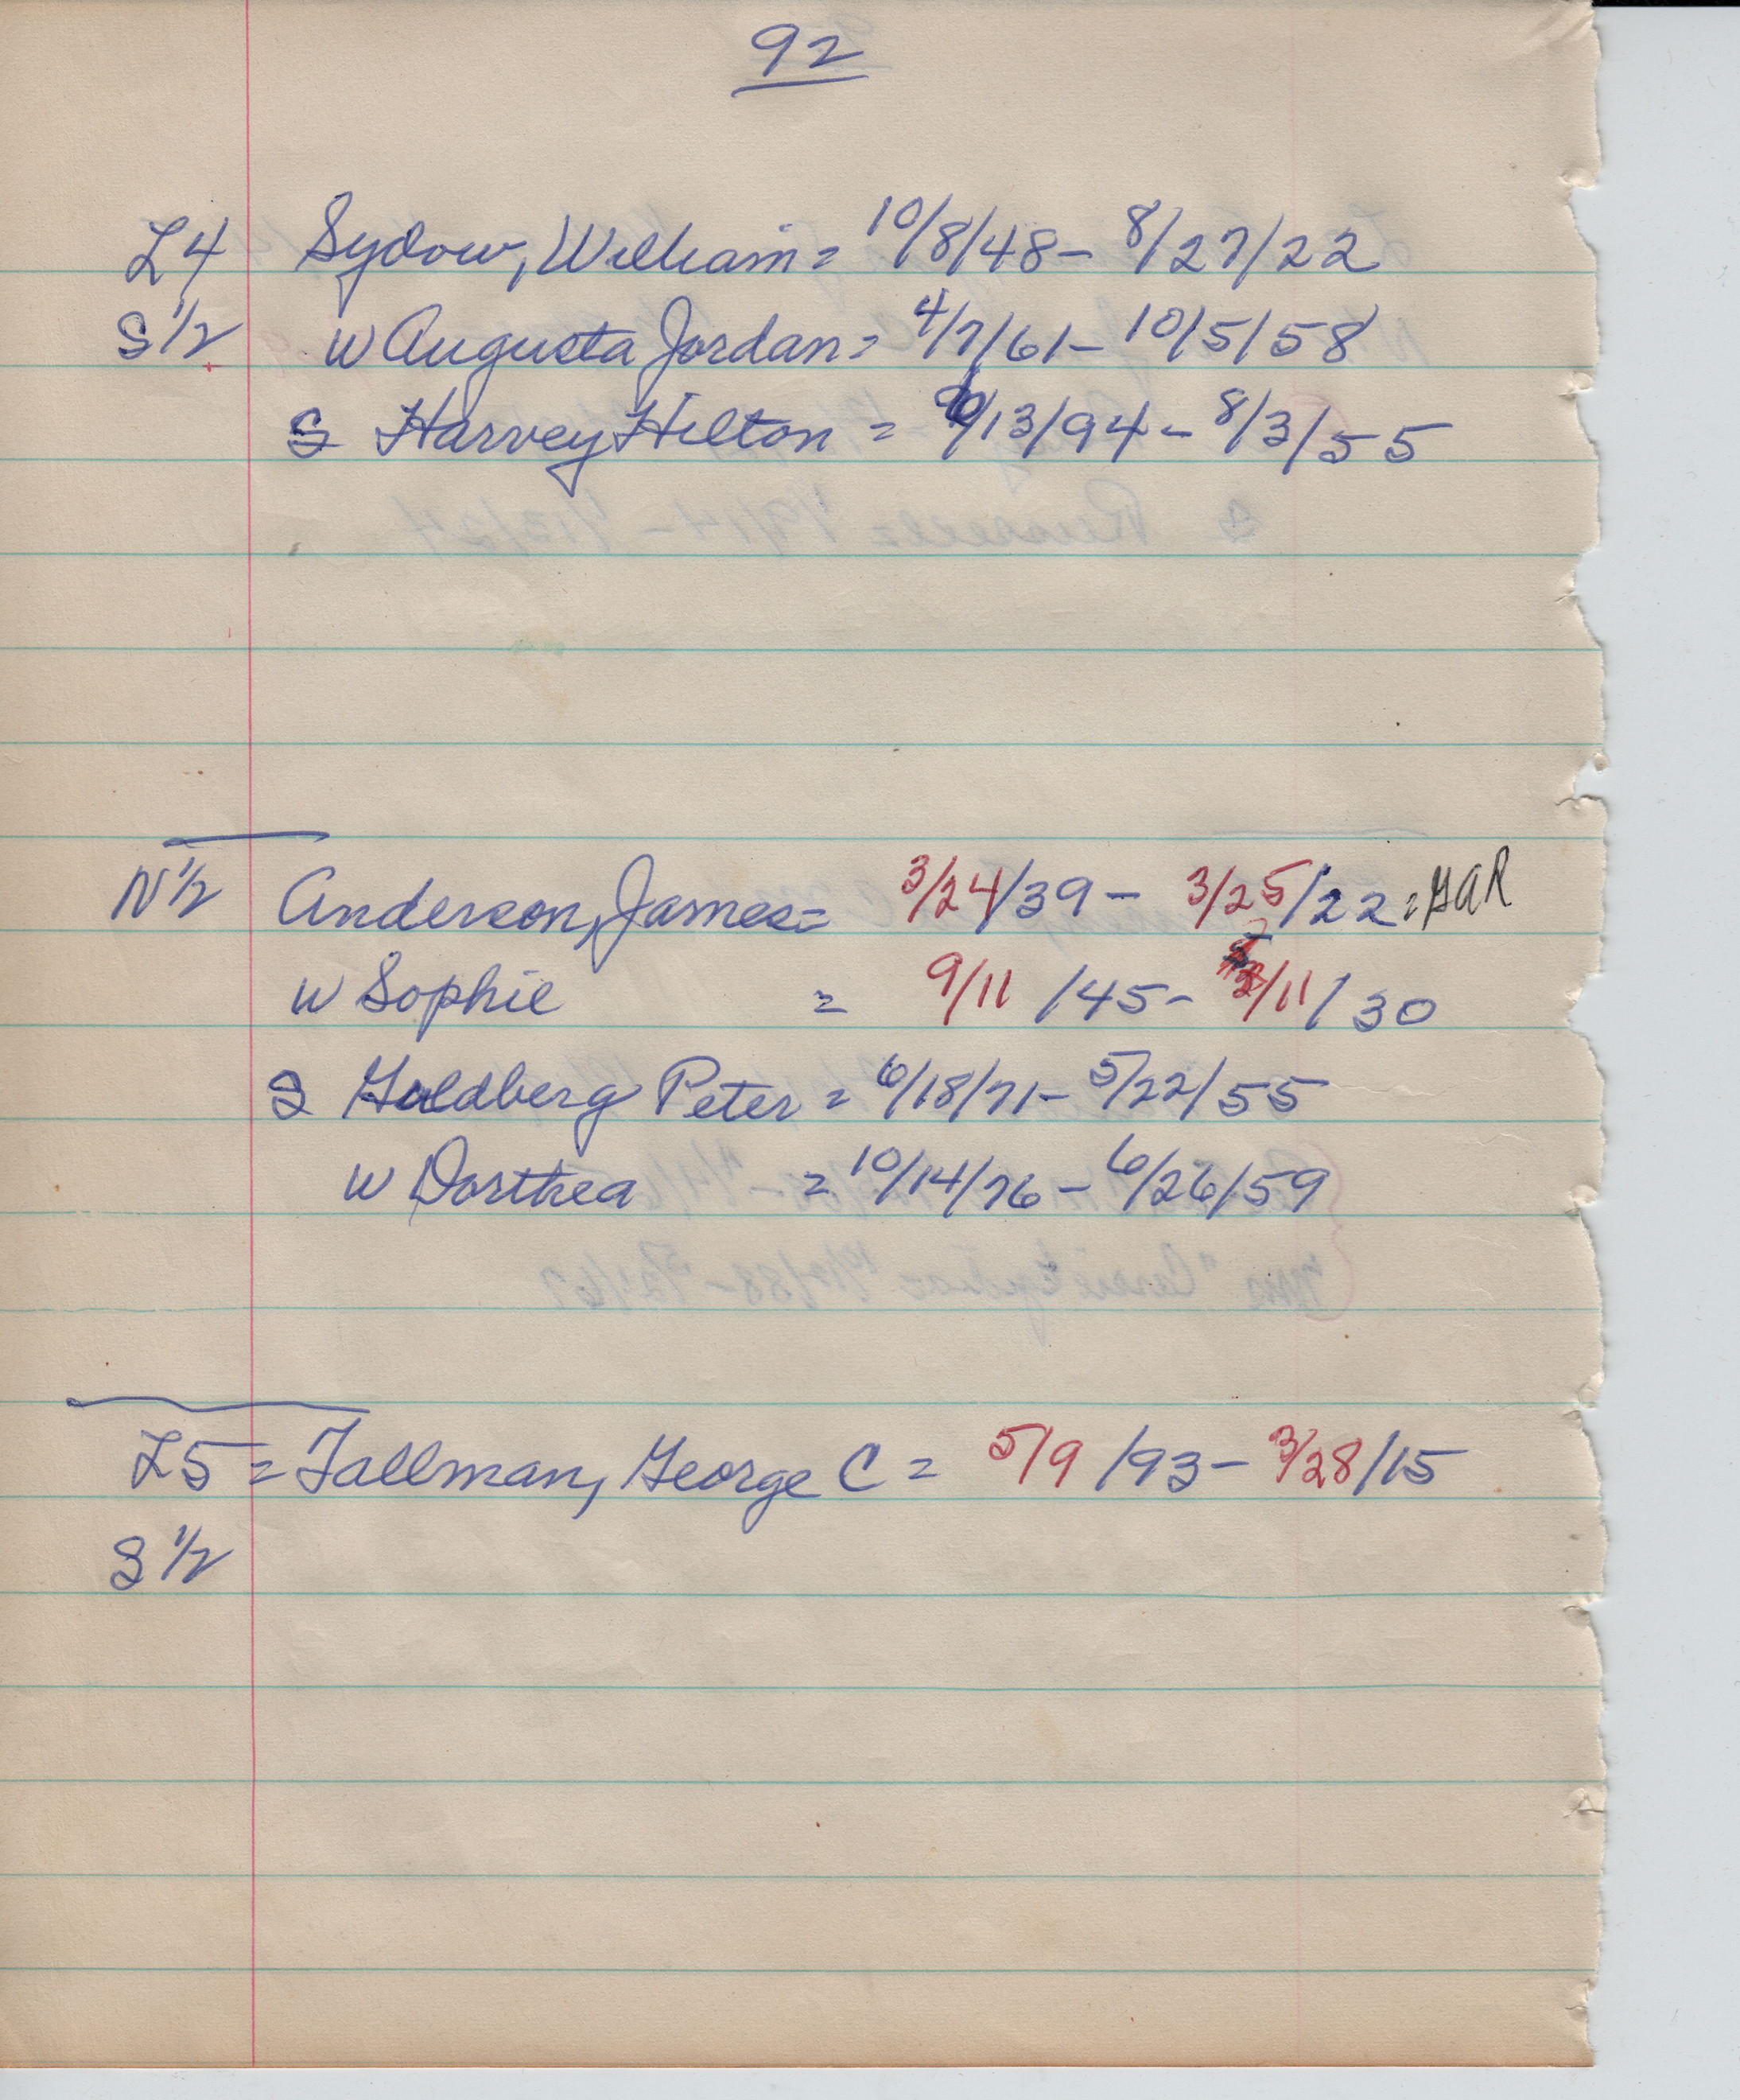 92
L4 Sydow, William = 10/8/48 - 8/27/22
S 1/2 w Augusta Jordan = 4/7/61 - 10/5/58
S Harvey Hilton = /13/94 - 8/3/55
N 1/2 Anderson, James = 3/24/39 - 3/25/22 = GAR
w Sophie = 9/11/45 - /11/30
S Goldberg Peter = 6/18/71 - 5/22/55
w Dorthea = 10/14/76 - 6/26/59
L5 = Tallman, George C = 5/9/93 - 3/28/15
S 1/2